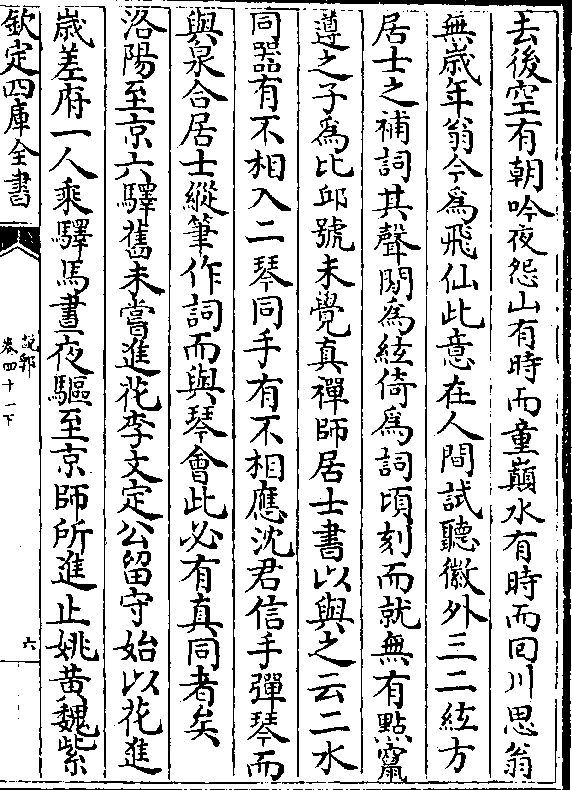 去後空有朝吟夜怨山有時而童巔水有時而回川思翁
無歳年翁今為飛仙此意在人間試聽徽外三二絃方
居士之補詞其聲閒為絃倚為詞頃刻而就無有點竄
遵之子為比邱號未覺真禪師居士書以與之云二水
同器有不相入二琴同手有不相應沈君信手彈琴而
與泉合居士縱筆作詞而與琴會此必有真同者矣
洛陽至京六驛舊未嘗進花李文定公留守始以花進
嵗差府一人乘驛馬晝夜驅至京師所進止姚黃魏紫
欽定四庫全書
說郛
卷四十一下
六